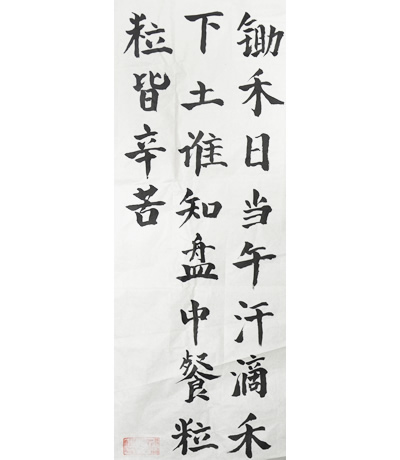 锄禾日当午汗滴禾
下土谁知盘中餐粒
粒皆辛苦